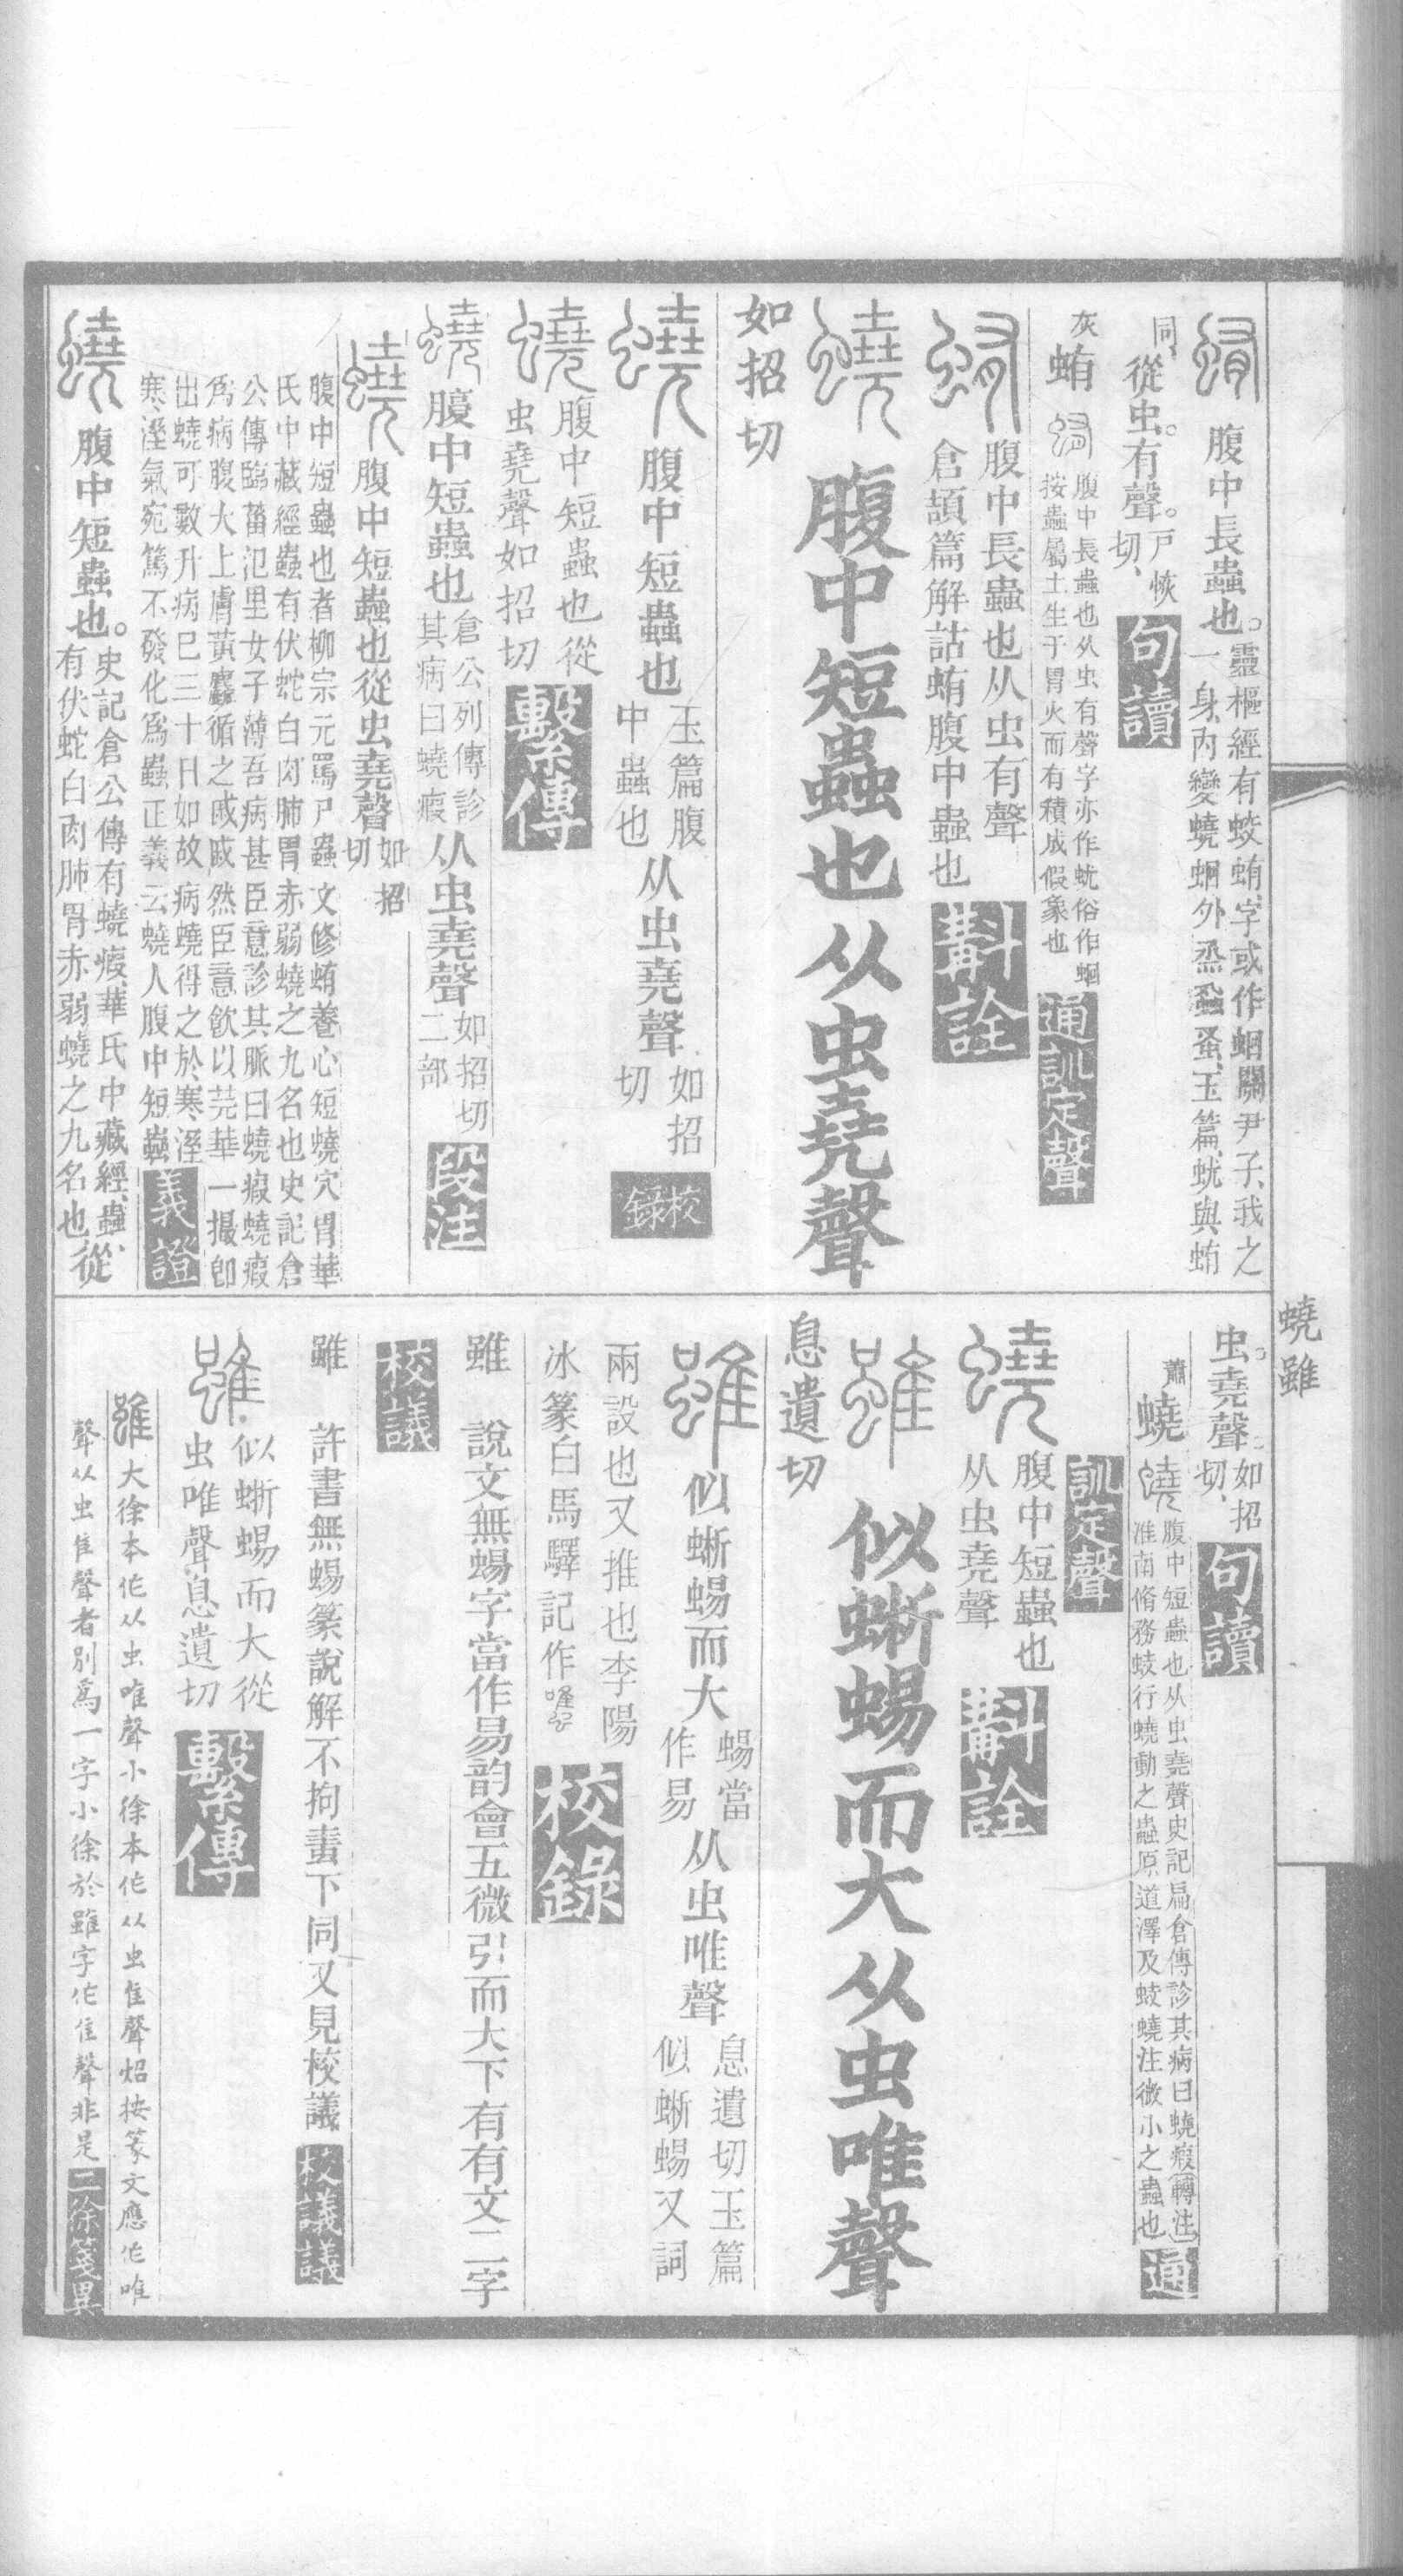 蛕 腹中長蟲也。靈樞經有蛟蛕、字或作蛔、關尹子、我之
一身、內變蟯蛔、外烝蝨蚤、玉篇、蚘與蛕
同、從虫。有聲。戶恢
切、句讀
灰 蛕 腹中長蟲也从虫有聲字亦作蚘俗作蛔
按蟲屬土生于胃火而有積成假象也 通訓定聲
蛕 腹中長蟲也从虫有聲
倉頡篇解詁蛕腹中蟲也 斠詮
蟯 腹中短蟲也从虫堯聲
如招切
蟯 腹中短蟲也 玉篇腹
中蟲也 从虫堯聲 如招
切 校錄
蟯 腹中短蟲也從
虫堯聲如招切 繫傳
蟯 腹中短蟲也 倉公列傳診
其病曰蟯瘕 从虫堯聲 如招切
二部 段注
蟯 腹中短蟲也從虫堯聲 如招
切
腹中短蟲也者柳宗元罵尸蟲文修蛕恙心短蟯穴胃華
氏中藏經蟲有伏蛇白肉肺胃赤弱蟯之九名也史記倉
公傳臨菑氾里女子薄吾病甚臣意診其脈曰蟯瘕蟯瘕
爲病腹大上膚黃麤循之戚戚然臣意飲以芫華一撮卽
出蟯可數升病已三十日如故病蟯得之於寒溼
寒溼氣宛篤不發化爲蟲正義云蟯人腹中短蟲 義證
蟯 腹中短蟲也。史記倉公傳有蟯瘕、華氏中藏經、蟲、
有伏蛇白肉肺胃赤弱蟯之九名也、從
蟯 雖
虫。堯聲。如招
切、句讀
蕭 蟯 腹中短蟲也从虫堯聲史記扁倉傳診其病曰蟯瘕轉注
淮南脩務蚑行蟯動之蟲原道澤及蚑蟯注微小之蟲也 通
訓定聲
蟯 腹中短蟲也
从虫堯聲 斠詮
雖 似蜥蜴而大从虫唯聲
息遺切
雖 似蜥蜴而大 蜴當
作易 从虫唯聲 息遺切玉篇
似蜥蜴又詞
兩設也又推也李陽
冰篆白馬驛記作 校錄
雖 說文無蜴字當作易韵會五微引而大下有有文二字
校議
雖 許書無蜴篆說解不拘畫下同又見校議 校議議
雖 似蜥蜴而大從
虫唯聲息遺切 繫傳
雖 大徐本作从虫唯聲小徐本作从虫隹聲炤按篆文應作唯
聲从虫隹聲者別爲一字小徐於雖字作隹聲非是 二徐箋異